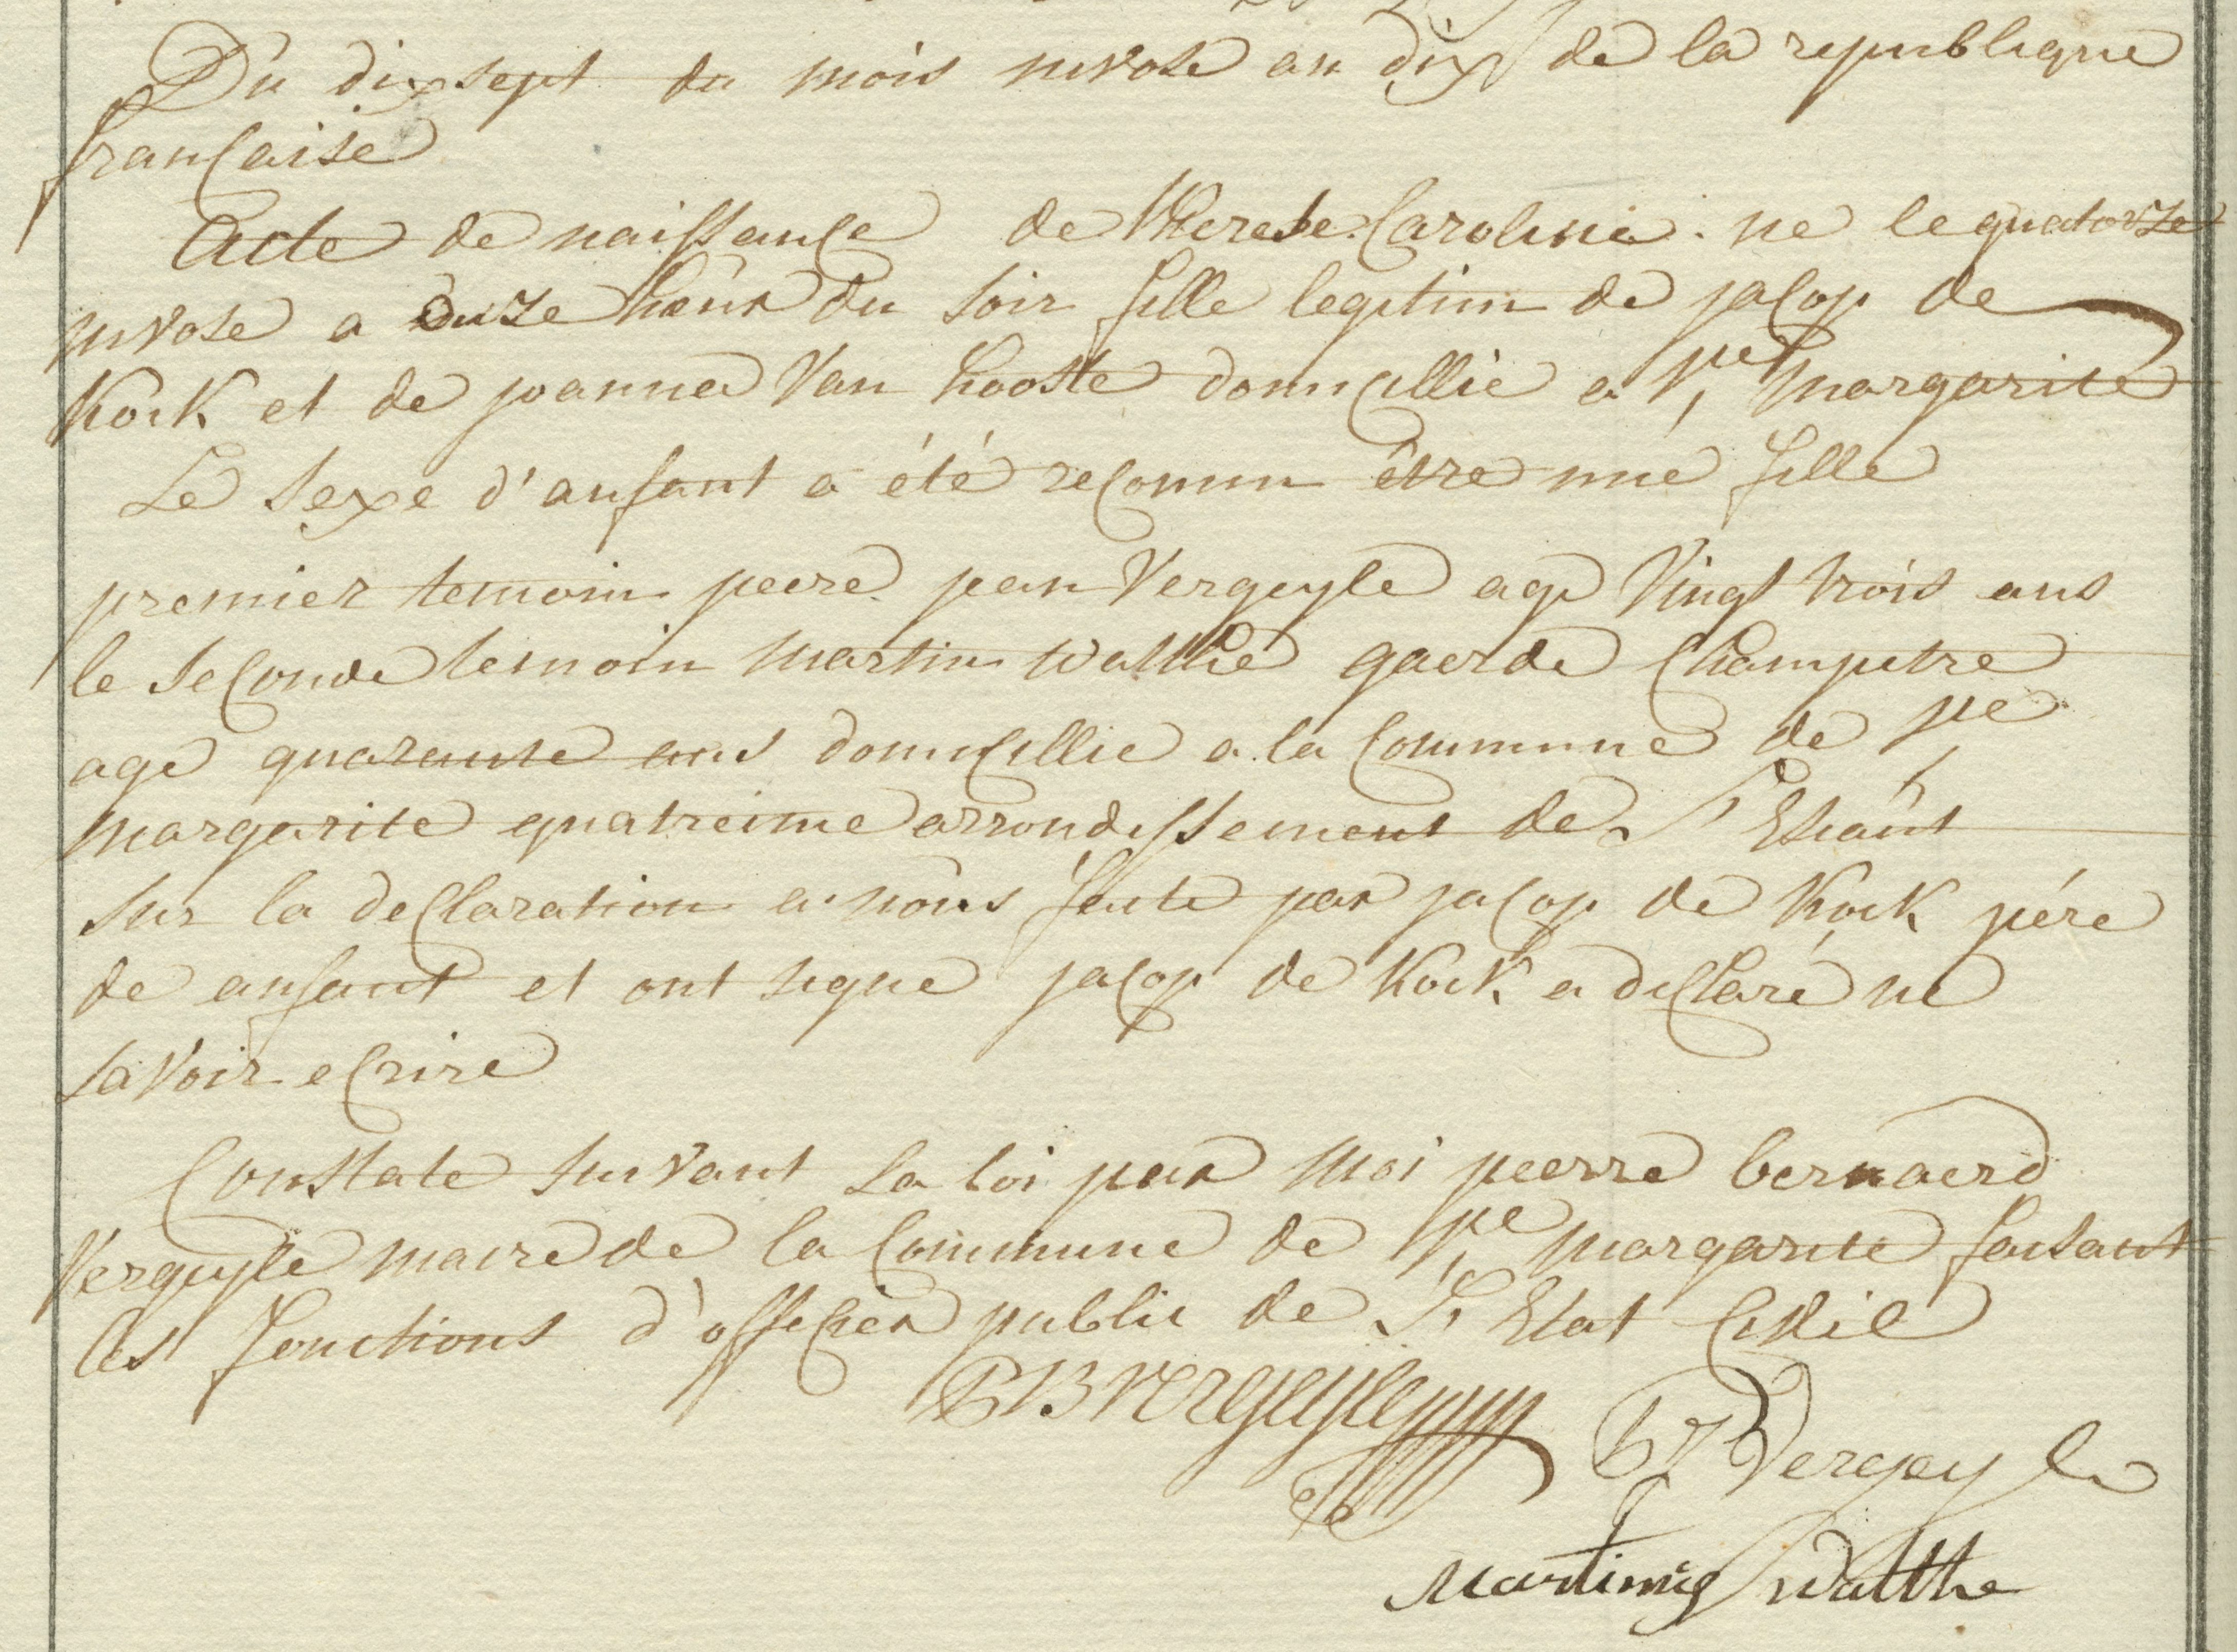 Du dix sept du mois nivose an dix de la republique
française
Acte de naissance de Therese Caroline ne le quatorze
nivose a onze heur du soir fille legitim de jacop de
Kock et de joanna Van hooste domicillié a Ste margarite
Le sexe d'anfant a été reconnu être une fille
premier temoin peere jean Vergeyle age Vingt trois ans
le seconde temoin martin watthé gaerde Champetre
age quarante ans domicillie a la Commune de Ste
margarite quatreime arrondissement de l'Escaut
sur la declaration a nous faite par jacop de Kock pére
de anfant et ont signe jacop de Kock a declaré ne
savoir ecrire
Constate suivant la loi par moi peerre bernaerd
Vergeyle maire de la Commune de Ste margarite faisant
les fonctions d'officier public de l'Etat Civil
PB Vergeyle
PJ Vergeyle
Martinus Watthe